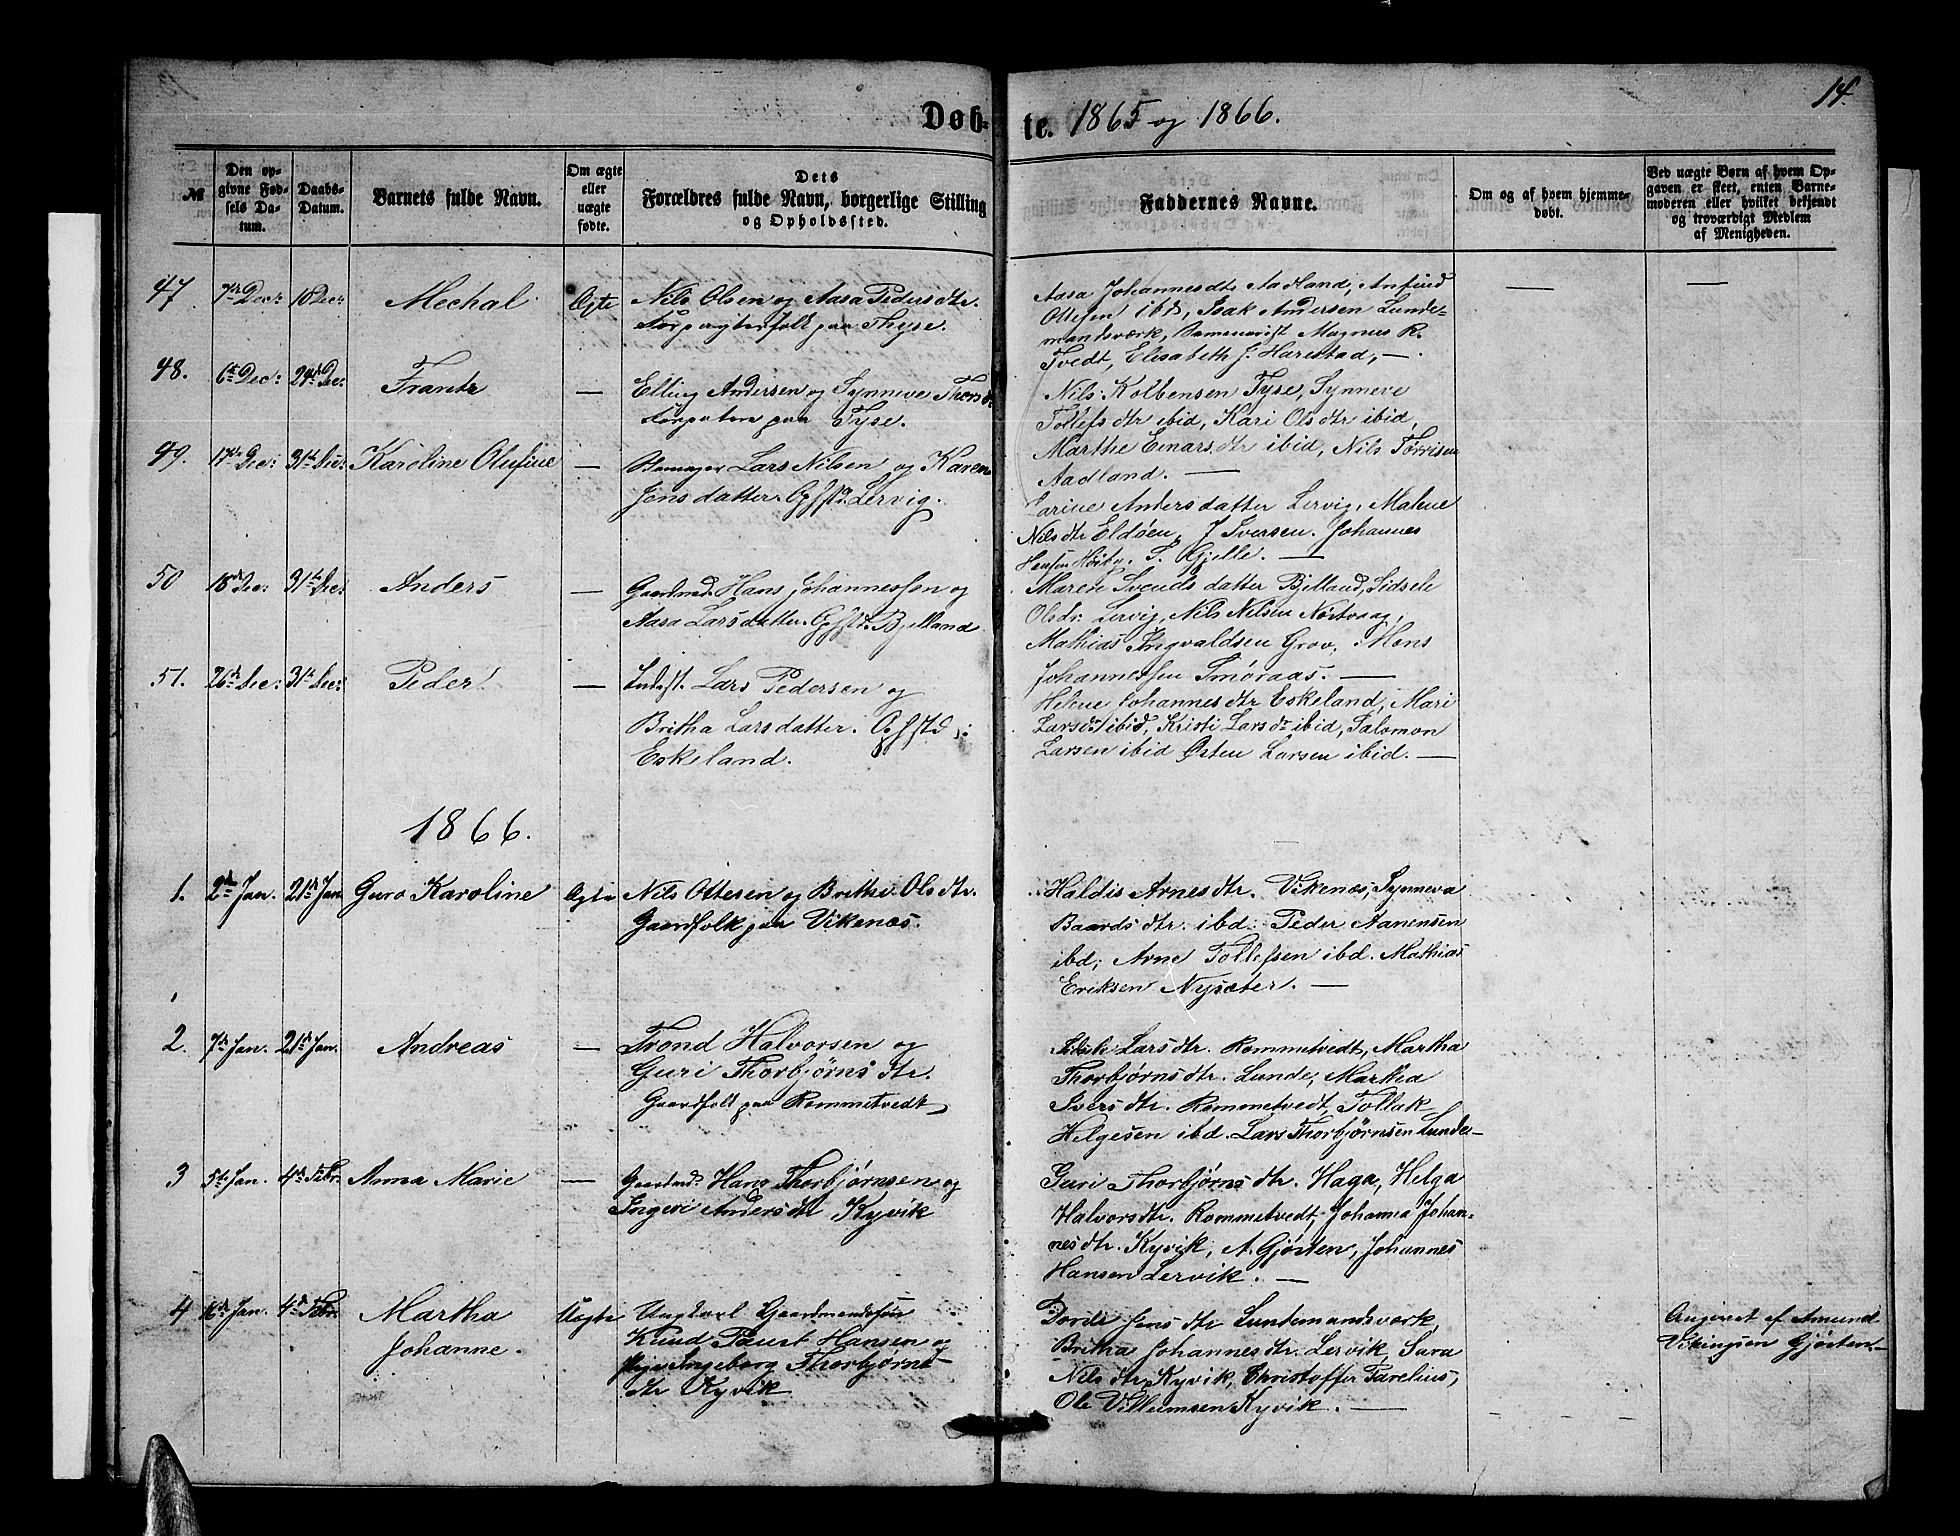 14.
Døb-te. 1865 og 1866.
№
Den op-
givne Fød-
sels Da-
tum.
Daabs-
Datum.
Barnets fulde Navn.
Om ægte
eller
uægte
fødte.
Dets
Forældres fulde Navn, borgerlige Stilling
og Opholdssted.
Faddernes Navne.
Om og af hvem hjemme-
døbt.
Ved uægte Børn af hvem Op-
gaven er skeet, enten Barne-
moderen eller hvilket bekjendt
og troværdigt Medlem
af Menigheden.
47 7de Decr 10 Decr Mechal Ægte Nils Olsen og Aasa Pedersdtr.
paa Thyse.
Aasa Johannesdtr Aadland, Anfind
Ottesen ibd, Isak Andersen Lunde-
mandsværk, Magnus R.
Tvedt, Elisabeth J. Harestad, —.
48. 6te Dec: 24de Dec: Frantz — Elling Andersen og Synneve Thorsdtr
paa Tyse.
Nils Kolbensen Tyse, Synneve
Tollefsdtr ibid, Kari Olsdtr ibid,
Marthe Einarsdtr ibid, Nils Tørrisen
Aadland. —
49. 17de Dec: 31te Dec: Karoline Olufine — Lars Nilsen og Karen
Jensdatter. Ophstd. Lervig.
Larine Andersdatter Lervig, Malene
Nilsdtr Eldøen, J Iversen. Johannes
Hansen S. Gjelle. —
50 18de Dec: 31te Dec: Anders — Gaardmd. Hans Johannessen og
Aasa Larsdatter. Ophstd. Bjelland
Maren Svendsdatter Bjelland, Sidsele
Olsdr: Lervig, Nils Nilsen Nortvaag,
Mathias Ingvaldsen Grov, Mons
Johannessen Smøraas. —
51. 26de Dec: 31te Dec: Peder — Inderst. Lars Pedersen og
Britha Larsdatter. Ophstd:
Eskeland.
Helene Johannesdtr Eskeland, Mari
Larsdtr ibid, Kristi Larsdr ibid, Salomon
Larsen ibid Østen Larsen ibid. —
1866.
1. 2den Jan. 21de Jan. Guro Karoline Ægte Nils Ottesen og Brithe Olsdtr.
Gaardfolk paa Vikenæs.
Haldis Arnesdtr. Vikenæs, Synneva
Baardsdtr. ibd: Peder Aanensen
ibd; Arne Tollefsen ibd. Mathias
Eriksen Nysæter. —
2. 7de Jan. 21de Jan. Andreas — Trond Halvorsen og
Guri Thorbjørnsdtr.
Gaardfolk paa Rommetvedt
Larsdtr. Rommetvedt, Martha
Thorbjørnsdtr. Lunde, Martha
Iversdtr. Rommetvedt, Tollak
Helgesen ibd. Lars Thorbjørnsen Lunde.—
3 5te Jan. 4de Febr. Anna Marie — Gaardmd. Hans Thorbjørnsen og
Ingeri Andersdtr Kyvik
Guri Thorbjørnsdtr. Haga, Helga
Halvorsdtr. Rommetvedt, Johanna Johan-
nesdtr. Kyvik, A. Gjøsten, Johannes
Hansen Lervik. —
4 16de Jan. 4de Febr. Martha
Johanne. Uægte Ungkarl Gaardmandssøn
Knud Paust Hansen og
Pige Ingeborg Thorbjørns-
dtr Kyvik
Dorde Jensdtr Lundemandsværk,
Britha Johannesdtr. Lervik, Sara
Nilsdtr, Kyvik, Christoffer Parelius,
Ole Villumsen Kyvik. —
Angivet af Amund
Vikingsen Gjøsten.—